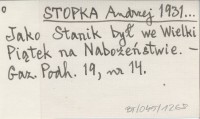 STOPKA Andrzej 1931...
Jako Stanik był we Wielki
Piątek na Nabożeństwie. –
Gaz. Podh. 19, nr 14.